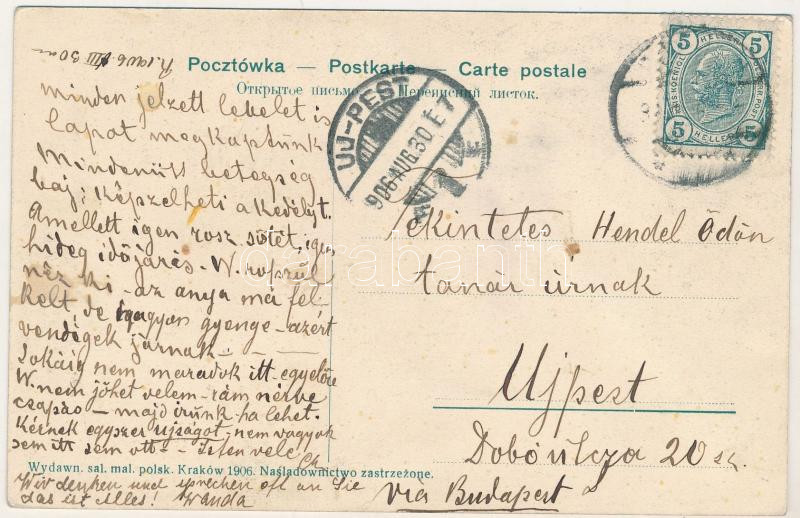 1906 VIII 30
Pocztówka — Postkarte — Carte postale
Открытое письмо — Переписний листок.
minden jelzett levelet is
lapot megkaptunk
Mindenütt betegség
baj; képzelheti a kedélyt.
Amellett igen rosz sötét, igen
hideg időjárás. W. roszul
néz ki - az anya má fel-
kelt, de nagyon gyenge - azért
vendégek járnak - - —
Sokáig nem maradok itt - egyelőre
W. nem jöhet velem - rám nézve
csapás - majd írunk ha lehet.
Kérnek egyszer ujságot, nem vagyok
sem itt sem ott - - Isten vele
Wir denken und sprechen oft an Sie
das ist Alles! Wanda
Wydawn. sal. mal. polsk. Kraków 1906. Naśladownictwo zastrzeżone.
Tekintetes Hendel Ödön
tanár úrnak
Ujpest
Dobó utcza 20 sz.
via Budapest
UJ-PEST
906 AUG. 30 É 7
5 HELLER 5
5 HELLER 5
darabanth